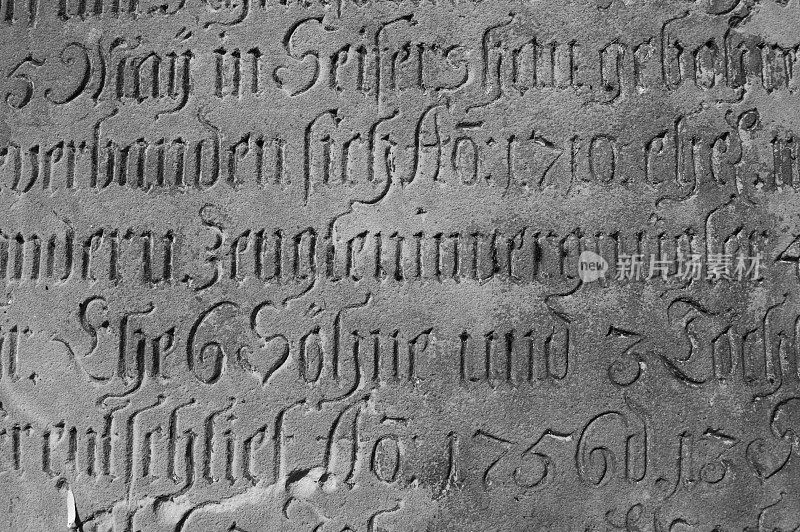 5 Maÿ in Seifershau gebohre
verbanden sich Aō: 1710. ehel.
ndern u Zeugten in vergnügter 4
r. Ehe 6 Söhne und 3 Töch
entschlief Aō 1756 d, 13
new 新片场图片